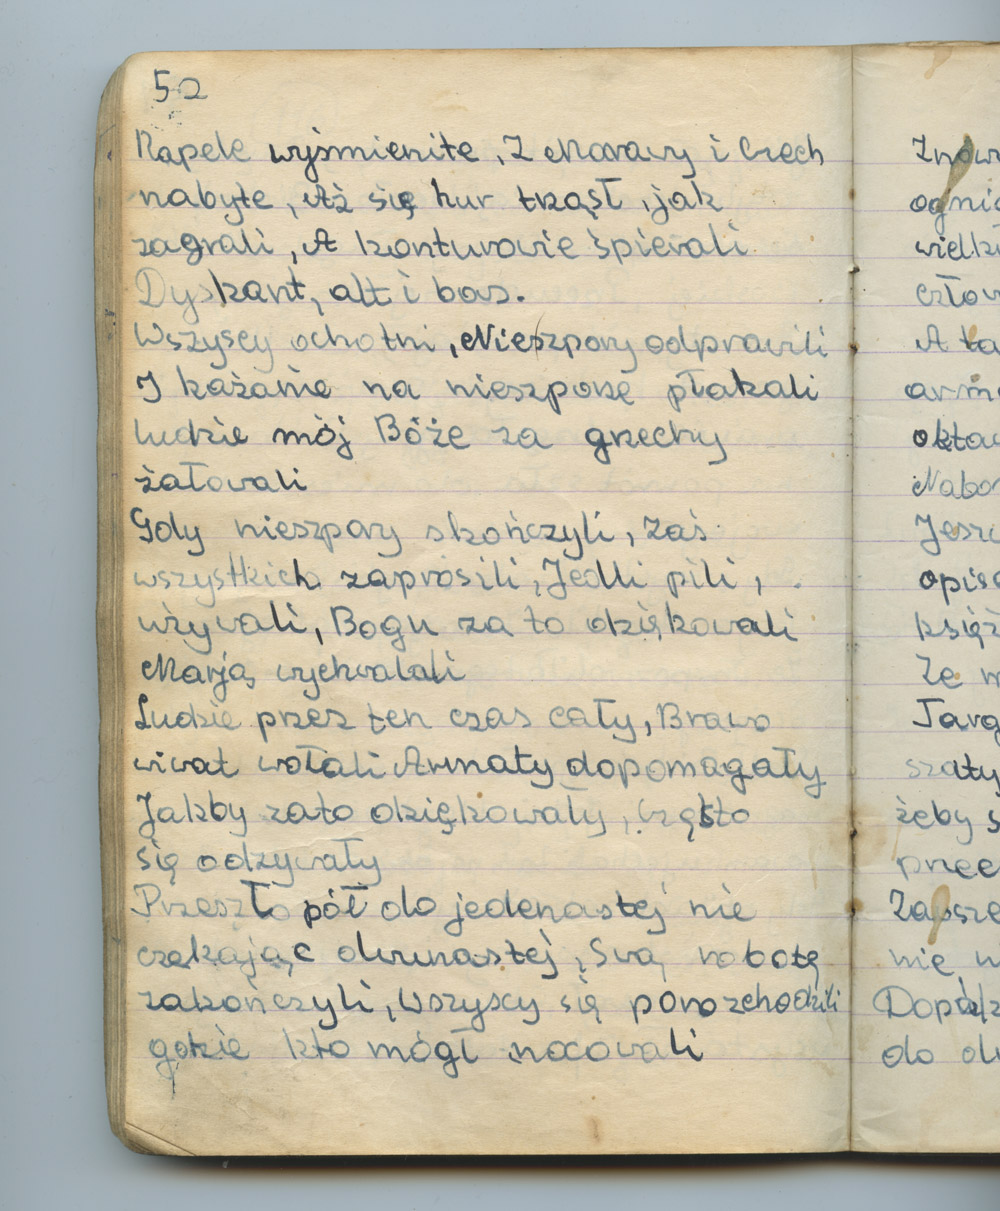 52
Kapele wyśmienite, Z Morawy i Czech
nabyte, Aż się hur trząsł, jak
zagrali, A konturowie śpierali
Dyskant, alt i bas.
Wszyscy ochotni, Nieszpory odprawili
I kazanie na nieszporze płakali
ludzie mój Bóże za grzechy
żałowali
Gdy nieszpory skończyli, zaś
wszystkich zaprosili, Jedli pili,
używali, Bogu za to dziękowali
Marją wychwalali
Ludzie przez ten czas cały, Brawo
wiwat wołali Armaty dopomagały
Jakby zato dziękowały, Często
się odzywały
Przeszło pół do jedenastej nie
czekając dwunastej, Swą robotę
zakończyli, Wszyscy się porozchodzili
gdzie kto mógł nocowali
Znow
ognio
wielk
człow
A ta
arma
oktac
Nabo
Jeszc
opisa
księż
Ze m
Targ
szaty
żeby s
przec
Zapsze
nie w
do du